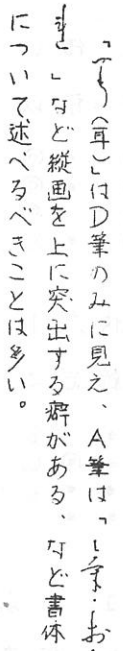 「〓（耳）」はD筆のみに見え、A筆は「〓・〓・お・
〓」など縦画を上に突出する癖がある、など書体
について述べるべきことは多い。